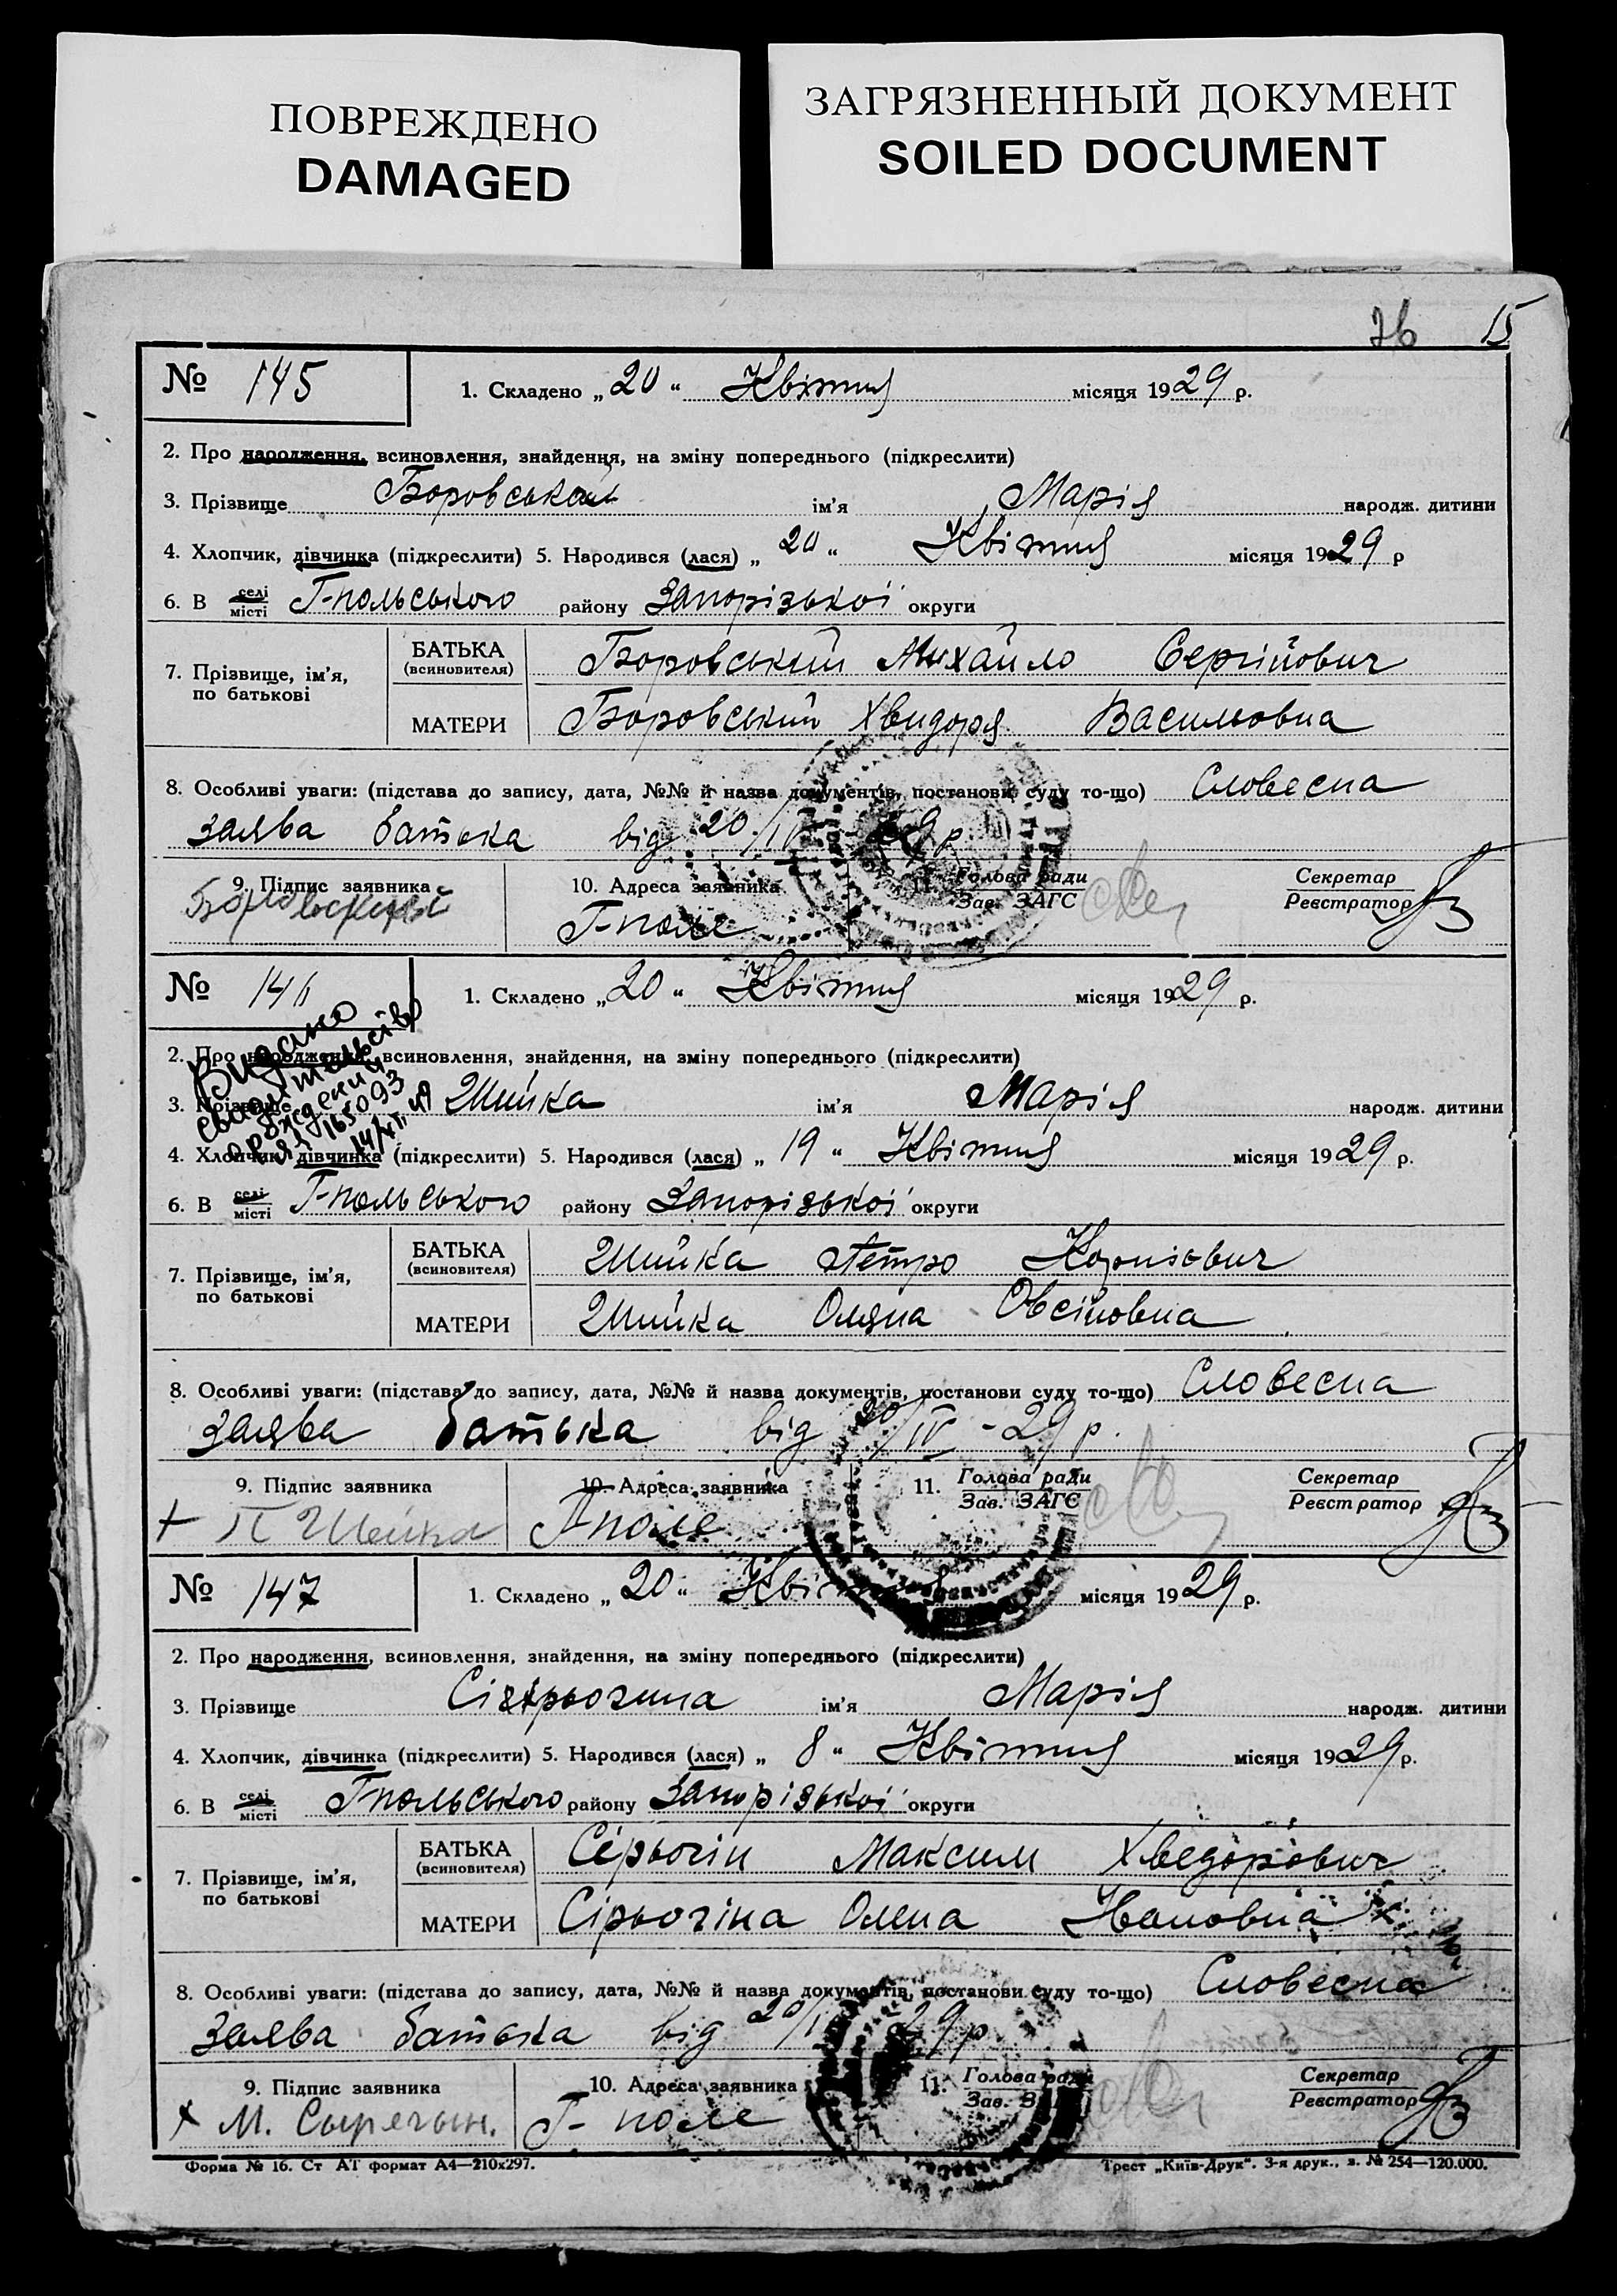 ПОВРЕЖДЕНО
DAMAGED
ЗАГРЯЗНЕННЫЙ ДОКУМЕНТ
SOILED DOCUMENT
76 15
№ 145 1. Складено „ 20 “ Квітня місяця 1929 р.
2. Про народження, всиновлення, знайдення, на зміну попереднього (підкреслити)
3. Прізвище Боровський ім'я Марія народж. дитини
4. Хлопчик, дівчинка (підкреслити) 5. Народився (лася) „ 20 “ Квітня місяця 1929 р
6. В селі/місті Г-польського району Запорізької округи
7. Прізвище, ім'я, по батькові
БАТЬКА (всиновителя) Боровський Михайло Сергійович
МАТЕРИ Боровський Хвидоря Васильовна
8. Особливі уваги: (підстава до запису, дата, №№ й назва документів, постанови суду то-що) Словесна
заява батька від 20/IV 29 р
9. Підпис заявника 10. Адреса заявника 11. Голова ради Секретар
Зав. ЗАГС Реєстратор
Боровский Г-поле
№ 146 1. Складено „ 20 “ Квітня місяця 1929 р.
Видано
свидітельсіво
о рождении
165093
2. Про народження, всиновлення, знайдення, на зміну попереднього (підкреслити)
3. Прізвище Шийка ім'я Марія народж. дитини
4. Хлопчик, дівчинка (підкреслити) 5. Народився (лася) „ 19 “ Квітня місяця 1929 р.
6. В селі/місті Г-польського району Запорізької округи
7. Прізвище, ім'я, по батькові
БАТЬКА (всиновителя) Шийка Петро Корнієвич
МАТЕРИ Шийка Оляна Овсійовна
8. Особливі уваги: (підстава до запису, дата, №№ й назва документів, постанови суду то-що) Словесна
заява батька від 20/IV - 29 р.
9. Підпис заявника 10. Адреса заявника 11. Голова ради Секретар
Зав. ЗАГС Реєстратор
+ П Шейка Г-поле
№ 147 1. Складено „ 20 “ Квітня місяця 1929 р.
2. Про народження, всиновлення, знайдення, на зміну попереднього (підкреслити)
3. Прізвище ім'я Марія народж. дитини
4. Хлопчик, дівчинка (підкреслити) 5. Народився (лася) „ 8 “ Квітня місяця 1929 р.
6. В селі/місті Гпольського району Запорізької округи
7. Прізвище, ім'я, по батькові
БАТЬКА (всиновителя) Сірьогін Максим Хведорович
МАТЕРИ Сірьогіна Олена Ивановна
8. Особливі уваги: (підстава до запису, дата, №№ й назва документів, постанови суду то-що) Словесна
Заява батька від 20/IV 29 р
9. Підпис заявника 10. Адреса заявника 11. Голова ради Секретар
Зав. Реєстратор
+ М. Сырегын. Г- поле
Форма № 16. Ст АТ формат А4—210х297. Трест „Київ-Друк“. 3-я друк., з. № 254—120.000.